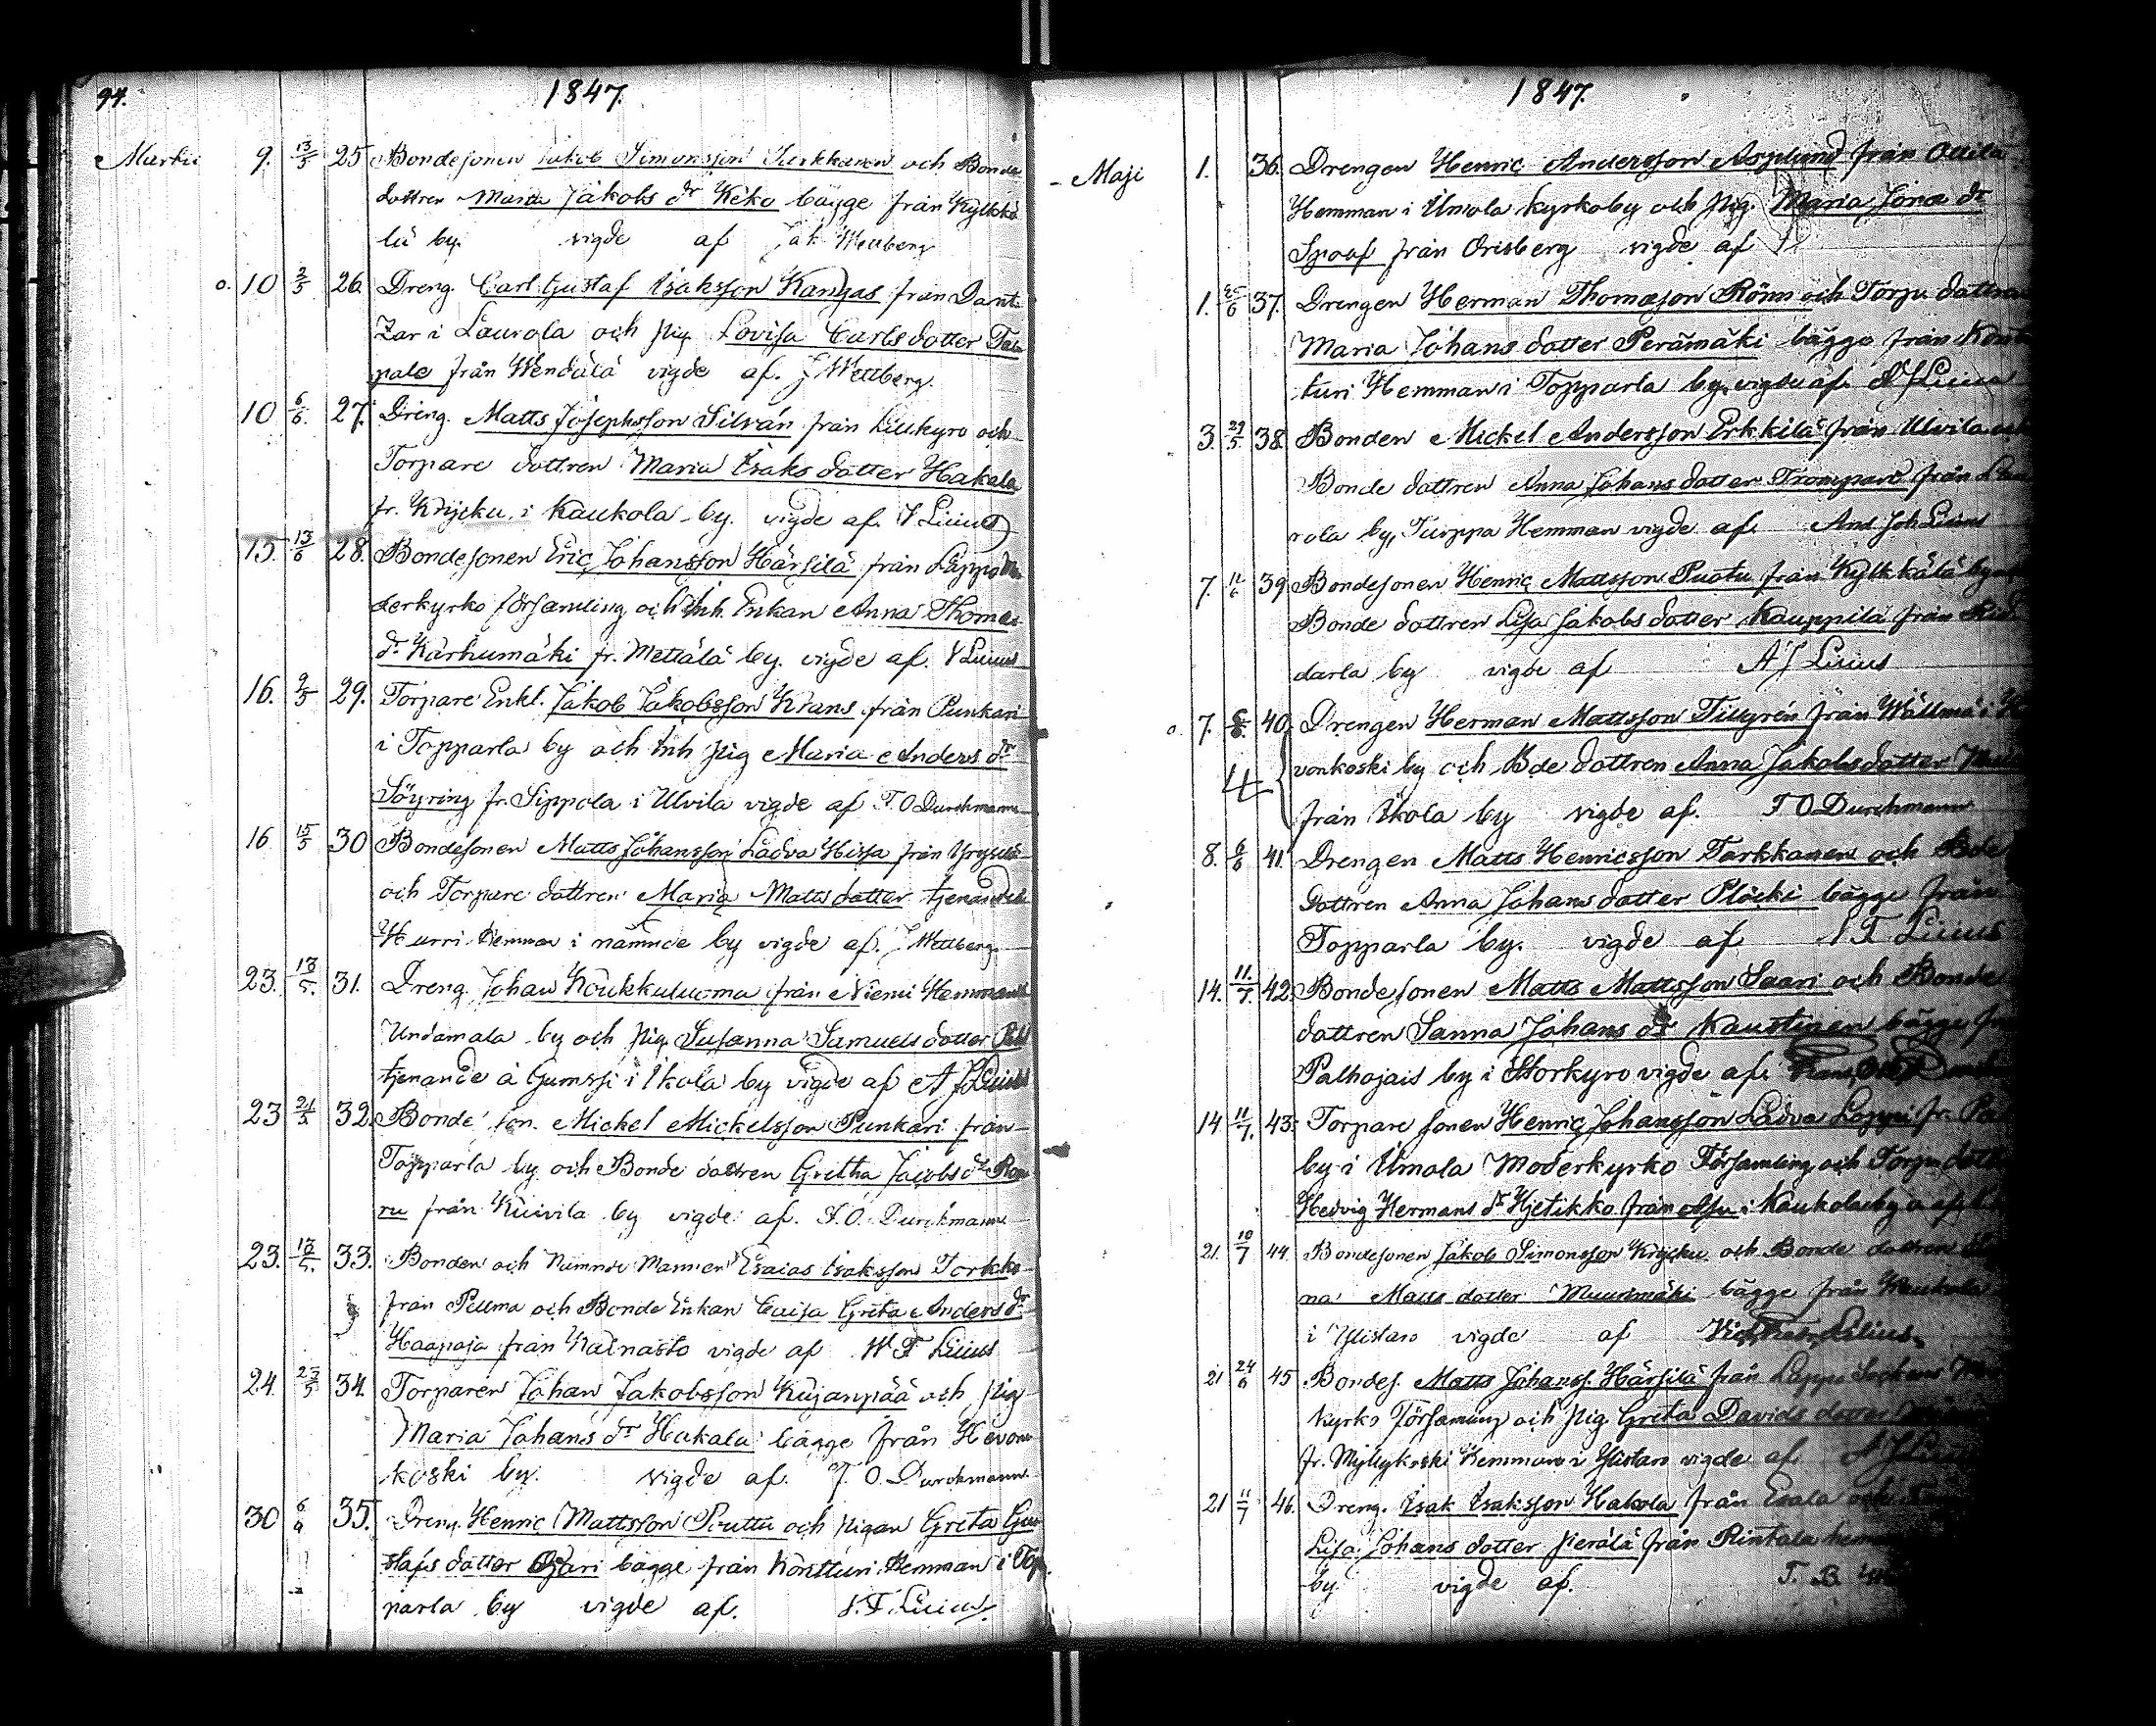 94.
1847.
Martii 9. 13/5 25. Bondesonen Jakob Simonsson Turkkanen och Bonde
dottren Maria Jakobs dr Keko bägge från Kylkkä
lä by. vigde af Jak. Wettberg
o. 10 2/5 26. Dreng. Carl Gustaf Isaksson Kangas från Dant
Zar i Laurola och pig. Lovisa Carls dotter Tai
pale från Wendälä vigde af. J Wettberg.
10 6/6. 27. Dreng. Matts Josephsson Silván från Lillkyro och
Torpare dottren Maria Isaks dotter Hakala
fr. Knjcku i Kaukola by. vigde af. Liiius
15. 13/6 28. Bondesonen Eric Johansson Härsilä från Lappo Mo
derkyrko församling och Inh. Enkan Anna Thomas
dr Karhumäki fr. Mettälä by. vigde af. Liiius
16. 9/5 29. Torpare Enkl. Jakob Jakobsson Krans från Punkari
i Topparla by och Inh pig Maria Anders dr
Söyring fr. Sippola i Ulvila vigde af T. O Durchmann
16 15/5 30 Bondesonen Matts Johansson Ladva Hissa från
och Torpare dottren Maria Matts dotter tjenande
Hurri Hemman i nämnde by vigde af. J Wettberg.
23. 13/5. 31. Dreng. Johan Koukkuluoma från Niemi Hemman
Undamala by och pig. Susanna Samuels dotter
tjenande å Gumssi i Ikola by vigde af A J Liiius
23 21/5 32. Bonde son. Mickel Mickelsson Punkari från
Topparla by och Bonde dottren Gretha Jacobs dr
ru från Kuivila by vigde af. T. O. Durchmann
23. 13/5. 33. Bonden och Nämnde Mannen Esaias Isaksson Torkko
från Pelma och Bonde Enkan Caisa Greta Anders dr
Haapoja från Kainasto vigde af W F Liiius
24. 23/5 34. Torparen Johan Jakobsson Kujanpää och pig
Maria Johans dr Hakala bägge från Hevon
koski by. vigde af. T. O. Durchmann.
30 6/9 35. Dreng. Henric Mattsson Pouttu och pigan Greta Gu
stafs dotter Ojari bägge från Köntturi Hemman i Top
parla by vigde af. F. Liiius.
1847.
Maji 1. 36. Drengen Henric Andersson Asplund från Ollila
Hemman i Ilmola kyrkoby och pig. Maria Jonæ dr
Spoof från Orisberg vigde af
1. 25/6 37. Drengen Herman Thomæson Rönn och Torpr dottren
Maria Johans dotter Perämäki bägge från Könt
turi Hemman i Topparla by. vigde af. A J Liiius
3. 29/5 38. Bonden Mickel Andersson Erkkilä från Ulvila och
Bonde dottren Anna Johans dotter Trompari från Lau
rola by, Turppa Hemman vigde af. And Joh Liiius
7. 11/6 39. Bondesonen Henric Mattsson Puotu från Kylkkälä by
Bonde dottren Lisa Jakobs dotter Kauppila från
darla by vigde af A J Liiius
o. 7. 6/5 40. Drengen Herman Mattsson Tillgrén från Wällmä i He
4 vonkoski by och Bde dottren Anna Jakobs dotter
från Ikola by vigde af. T O Durchmann
8. 6/6 41. Drengen Matts Henricsson Tarkkanen och Bde
dottren Anna Johans dotter Plöcki bägge från
Topparla by. vigde af F Liiius
14. 11/7 42. Bonde sonen Matts Mattsson Saari och Bonde
dottren Sanna Johans dr Kaustinen bägge
Palhojais by i Storkyro vigde af.
14. 11/7. 43. Torpare sonen Henric Johansson Ladva Lappi fr.
by i Ilmola Moderkyrko Församling och Torpr
Hedvig Hermans dr Hjetikko från i Kaukola by
21. 10/7 44. Bondesonen Jakob Simonsson Knjcku och Bonde dottren
na Matts dotter Muurimäki bägge från Kaukola
i Ylistaro vigde af
21 24/6 45 Bondes. Matts Johanss. Härsilä från Lappo Sockens
kyrko Församling och pig. Greta Davids dotter
fr. Myllykoski Hemman i Ylistaro vigde af
21 11/7 46. Dreng. Isak Isaksson Hakola från Esala och
Lisa Johans dotter Pierälä från Rintala hem
by vigde af. T. B.